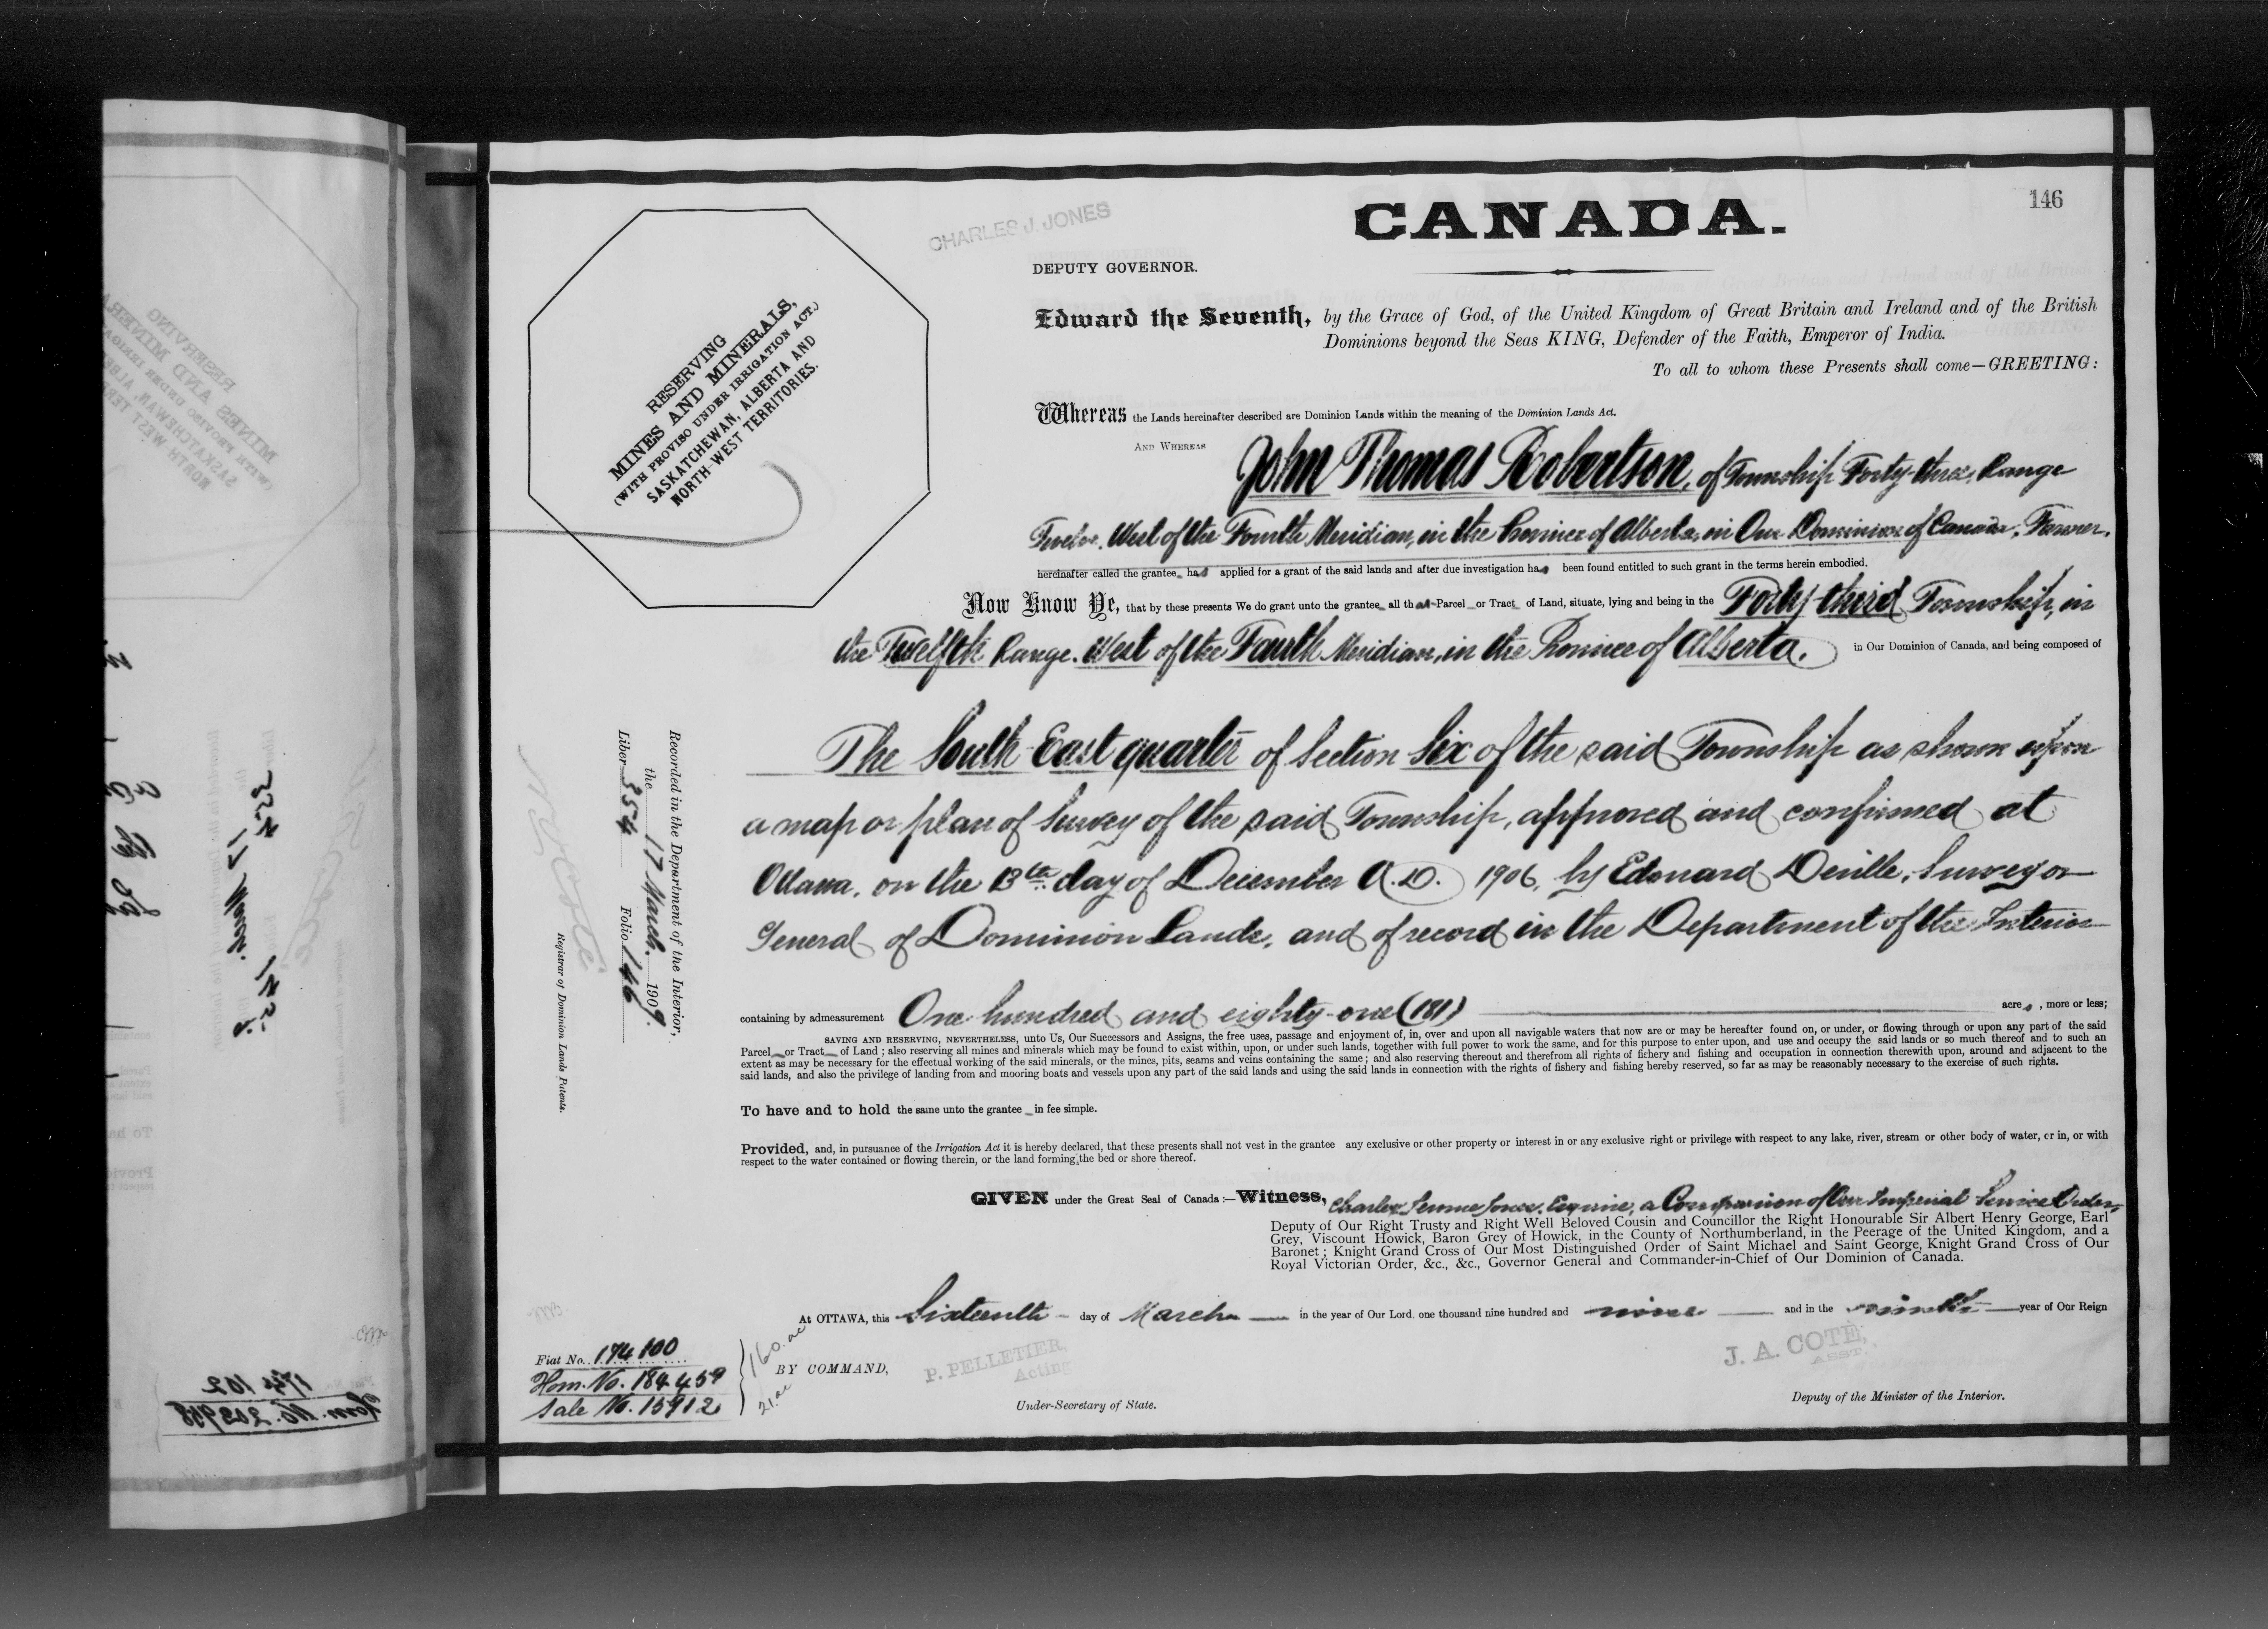 146
CANADA.
CHARLES J. JONES
DEPUTY GOVERNOR.
RESERVING
MINES AND MINERALS,
(WITH PROVISO UNDER IRRIGATION ACT.)
SASKATCHEWAN, ALBERTA AND
NORTH-WEST TERRITORIES.
Edward the Seventh, by the Grace of God, of the United Kingdom of Great Britain and Ireland and of the British
Dominions beyond the Seas KING, Defender of the Faith, Emperor of India.
To all to whom these Presents shall come—GREETING:
Whereas the Lands hereinafter described are Dominion Lands within the meaning of the Dominion Lands Act.
AND WHEREAS John Thomas Robertson, of Township Forty-three, Range
Twelve, West of the Fourth Meridian, in the Province of Alberta, in Our Dominion of Canada, Farmer,
hereinafter called the grantee has applied for a grant of the said lands and after due investigation has been found entitled to such grant in the terms herein embodied.
Now Know Ye, that by these presents We do grant unto the grantee all that Parcel or Tract of Land, situate, lying and being in the Forty-third Township, in
the Twelfth Range, West of the Fourth Meridian, in the Province of Alberta, in Our Dominion of Canada, and being composed of
The South East quarter of Section Six of the said Township as shown upon
a map or plan of Survey of the said Township, approved and confirmed at
Ottawa, on the 13th day of December A.D. 1906, by Edouard Deville, Surveyor
General of Dominion Lands, and of record in the Department of the Interior
containing by admeasurement One hundred and eighty-one (181) acres, more or less;
SAVING AND RESERVING, NEVERTHELESS, unto Us, Our Successors and Assigns, the free uses, passage and enjoyment of, in, over and upon all navigable waters that now are or may be hereafter found on, or under, or flowing through or upon any part of the said
Parcel or Tract of Land; also reserving all mines and minerals which may be found to exist within, upon, or under such lands, together with full power to work the same, and for this purpose to enter upon, and use and occupy the said lands or so much thereof and to such an
extent as may be necessary for the effectual working of the said minerals, or the mines, pits, seams and veins containing the same; and also reserving thereout and therefrom all rights of fichery and fishing and occupation in connection therewith upon, around and adjacent to the
said lands, and also the privilege of landing from and mooring boats and vessels upon any part of the said lands and using the said lands in connection with the rights of fishery and fishing hereby reserved, so far as may be reasonably necessary to the exercise of such rights.
To have and to hold the same unto the grantee in fee simple.
Provided, and, in pursuance of the Irrigation Act it is hereby declared, that these presents shall not vest in the grantee any exclusive or other property or interest in or any exclusive right or privilege with respect to any lake, river, stream or other body of water, or in, or with
respect to the water contained or flowing therein, or the land forming the bed or shore thereof.
GIVEN under the Great Seal of Canada:—Witness, Charles Jerome Jones, Esquire, a Companion of Our Imperial Service Order,
Deputy of Our Right Trusty and Right Well Beloved Cousin and Councillor the Right Honourable Sir Albert Henry George, Earl
Grey, Viscount Howick, Baron Grey of Howick, in the County of Northumberland, in the Peerage of the United Kingdom, and a
Baronet; Knight Grand Cross of Our Most Distinguished Order of Saint Michael and Saint George, Knight Grand Cross of Our
Royal Victorian Order, &c., &c., Governor General and Commander-in-Chief of Our Dominion of Canada.
At OTTAWA, this Sixteenth day of March in the year of Our Lord, one thousand nine hundred and nine and in the ninth year of Our Reign
BY COMMAND,
P. PELLETIER,
Acting
Under-Secretary of State.
J. A. COTÉ,
ASST.
Deputy of the Minister of the Interior.
Fiat No. 174100
Hom. No. 184459
Sale No. 15912
160 ac
21 ac
Recorded in the Department of the Interior,
the 17 March 1909.
Liber 354 Folio 146
Registrar of Dominion Lands Patents.